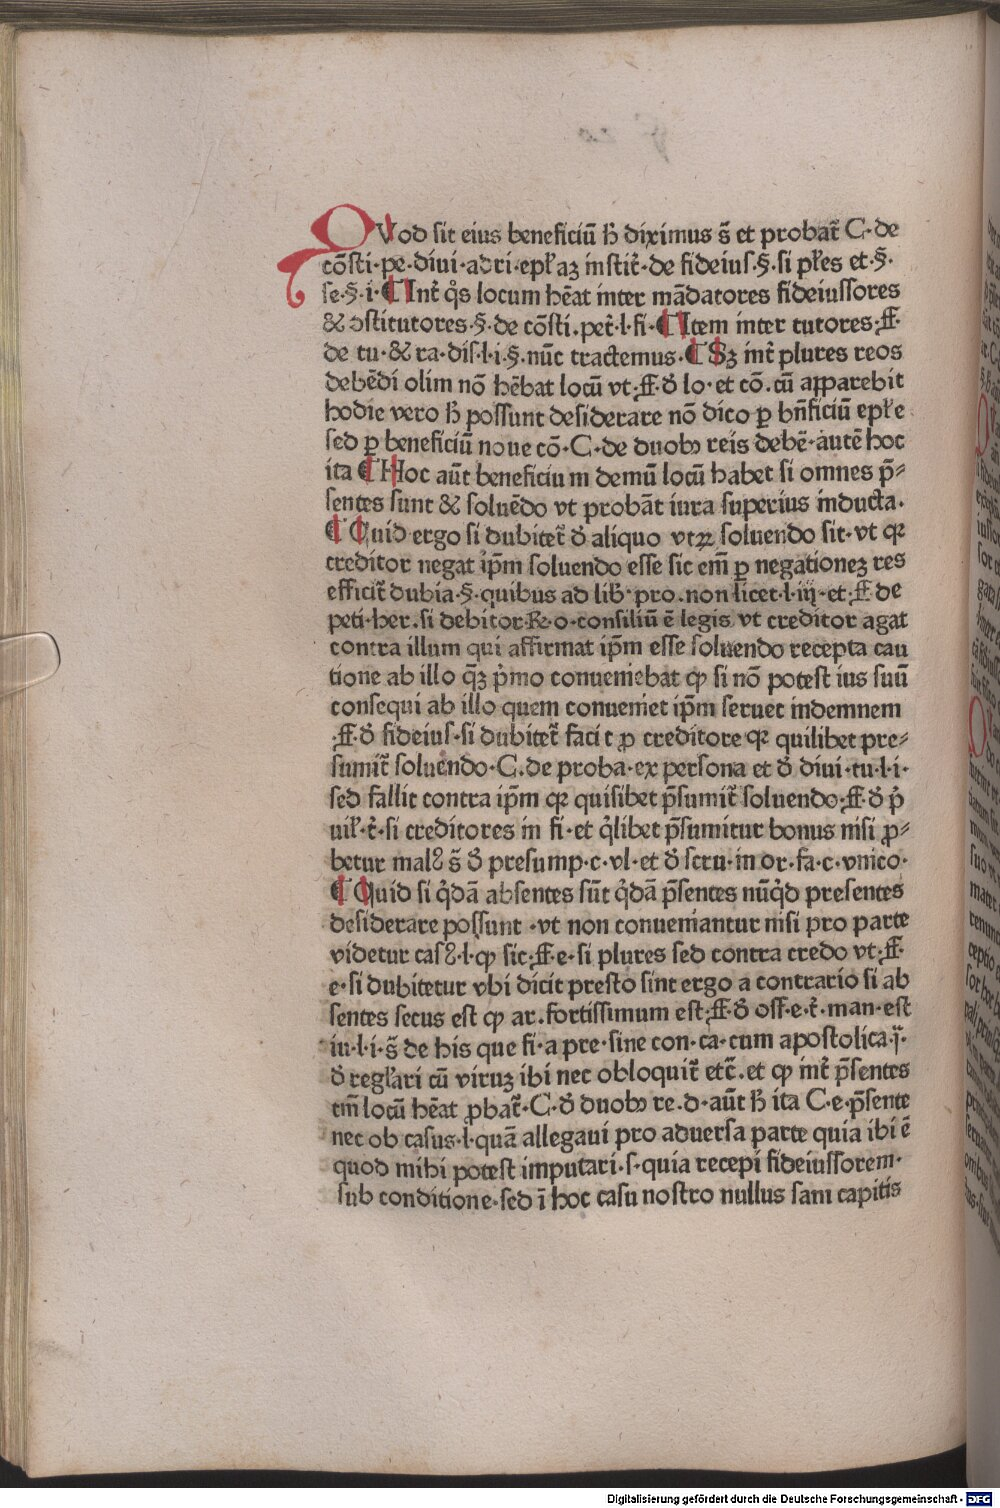 QVod sit eius beneficiū ħ diximus s̄ et probat̄ C·de
cōsti·pe·diui·adri·epl̄aꝫ instit̄·de fideius·§·si pl̄es et·§·
se·§·i·¶Int̄ q̊s locum hēat inter mādatores fideiussores
& ↄstitutores·§·de cōsti·pet̄·l·fi·¶Item inter tutores·ff·
de tu·& ra·dis·l·i·§·nūc tractemus·¶Sꝫ int̄ plures reos
debēdi olim nō hēbat locū vt·ff·ď lo·et cō·cū apparebit
hodie vero ħ possunt desiderare nō dico ꝑ bn̄ficiū epl̄e
sed ꝑ beneficiū noue cō·C·de duobꝰ reis debē·autē hoc
ita ¶Hoc aūt beneficiu m demū locū habet si omnes p̄⸗
sentes sunt & soluēdo vt probāt iura superius inducta·
¶Quid ergo si dubitet̄ ď aliquo vtꝝ soluendo sit·vt qꝛ
creditor negat ip̄m soluendo esse sic em̄ ꝑ negationeꝫ res
efficit̄ dubia·§·quibus ad lib̄·pro·non licet·l·iij·et·ff de
peti·her·si debitor·℞·o·consiliū ē legis vt creditor agat
contra illum qui affirmat ip̄m esse soluendo recepta cau
tione ab illo q̄ꝫ p̄mo conueniebat ꝙ si nō potest ius suū
consequi ab illo quem conueniet ip̄m seruet indemnem
·ff·ď fideius·si dubitet̄ faci t ꝓ creditore qꝛ quilibet pre⸗
sumit̄ soluendo·C·de proba·ex persona et ď diui·tu·l·i·
sed fallit contra ip̄m qꝛ quisibet p̄sumit̄ soluendo·ff·ď p̄
uil̄·t̄·si creditores in fi·et q̊libet p̄sumitur bonus nisi ꝓ⸗
betur malꝰ s̄ ď presump·c·vl·et ď scru·in or·fa·c·vnico·
¶Quid si q̊dā absentes sūt q̊dā p̄sentes nūq̊d presentes
desiderare possunt ·vt non conueniantur nisi pro parte
videtur casꝰ·l·ꝙ sic·ff·e·si plures sed contra credo vt·ff·
e·si dubitetur vbi dicit presto sint ergo a contrario si ab
sentes secus est ꝙ ar·fortissimum est·ff·ď off·e·t̄·man·est
iu·l·i·s̄ de his que fi·a pre·sine con·ca·cum apostolica·q̄·
ď regl̄ari cū viruꝫ ibi nec obloquit̄ etc̄·et ꝙ int̄ p̄sentes
tm̄ locū hēat ꝓbat̄·C·ď duobꝰ re·d·aūt ħ ita C·e·p̄sente
nec ob casus·l·quā allegaui pro aduersa parte quia ibi ē
quod mihi potest imputari·s·quia recepi fideiussorem·
sub conditione·sed ī hoc casu nostro nullus sani capitis
Digitalisierung gefördert durch die Deutsche Forschungsgemeinschaft - DFG